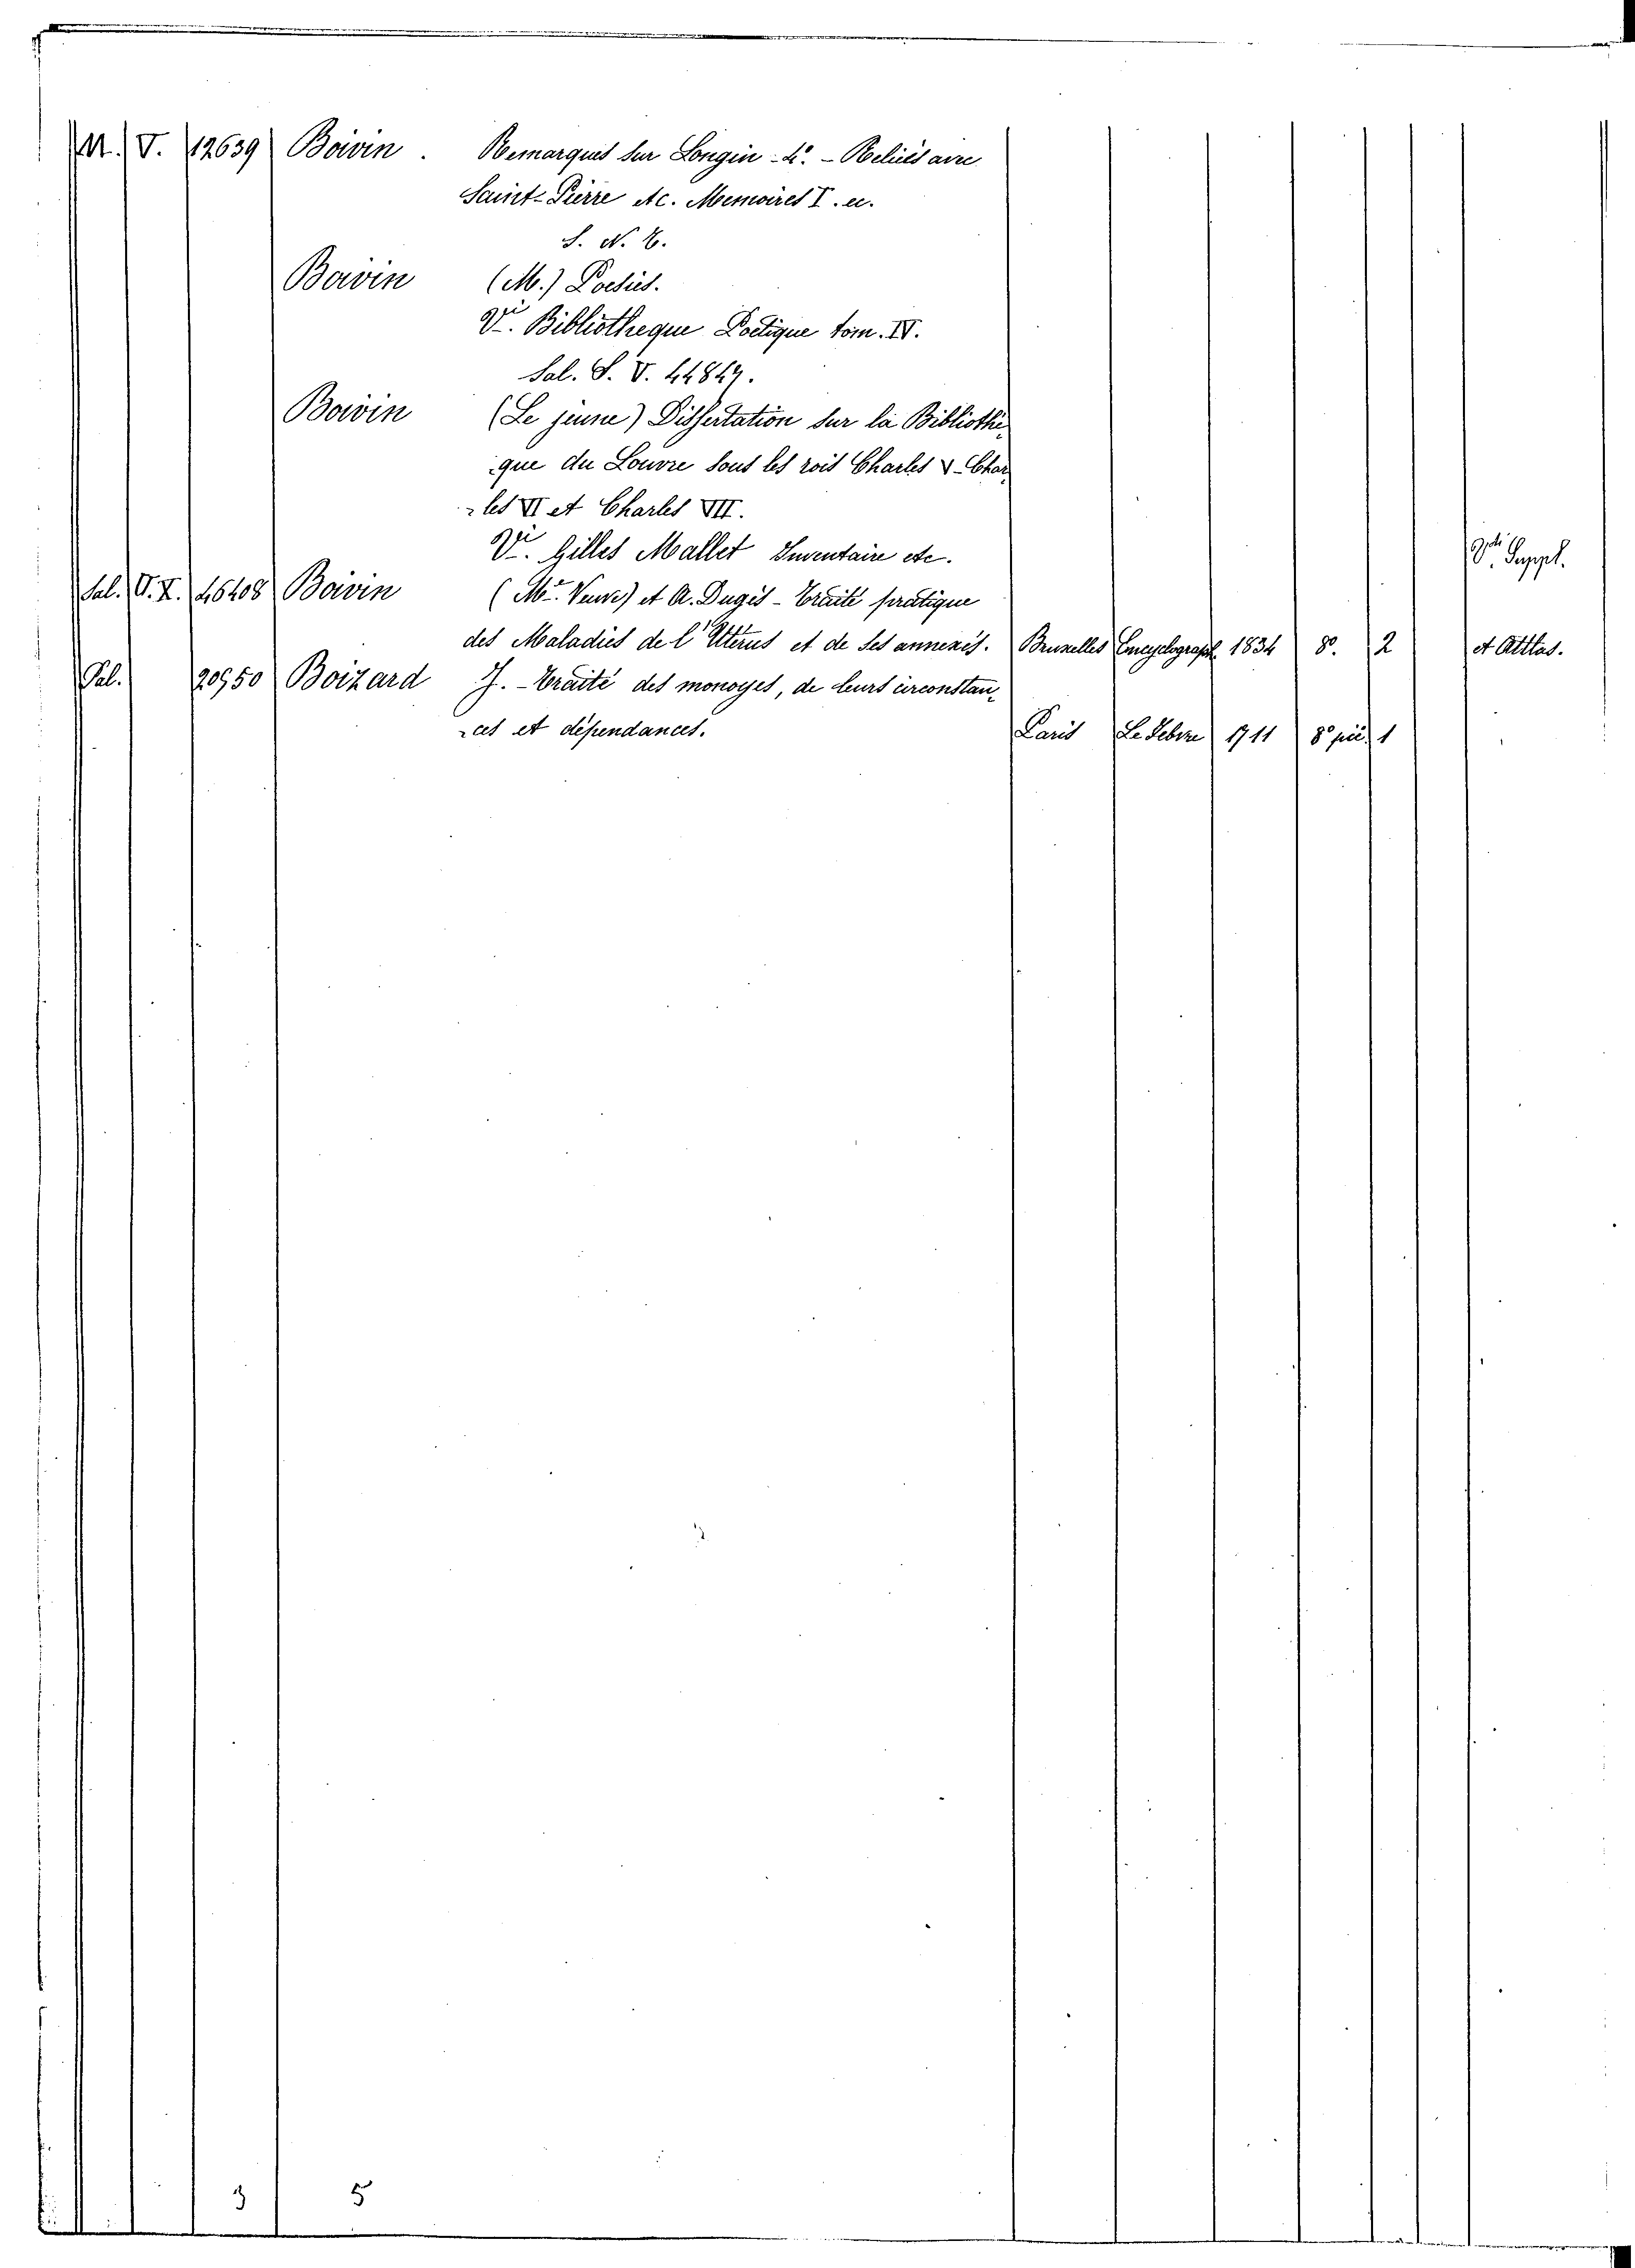 M. V. 12639 Boivin. Remarques sur Longin - 4º. -
Saint-Pierre etc. Memoires I. u.
S. N. 6.
Boivin (M.) Poesies.
Vi. Bibliotheque Poetique tom. IV.
Sal. S. V. 44849.
Boivin (Le jeune) Dissertation sur la Bibliothè-
que du Louvre sous les rois Charles V - Char-
les VI et Charles VII.
Vi. Gilles Mallet Inventaire etc. Vdi Suppl.
Sal. V. X. 46408 Boivin (Me. Veuve) et A. Dugès - Traité pratique
des Maladies de l'Uterus et de ses annexes. Bruxelles Encyclograph. 1834 8º. 2 et Attlas.
Pal. 20950 Boizard J. - Traité des monoyes, de leurs circonstan-
ces et dépendances. Paris Le Febvre 1711 8º pic. 1
3 5